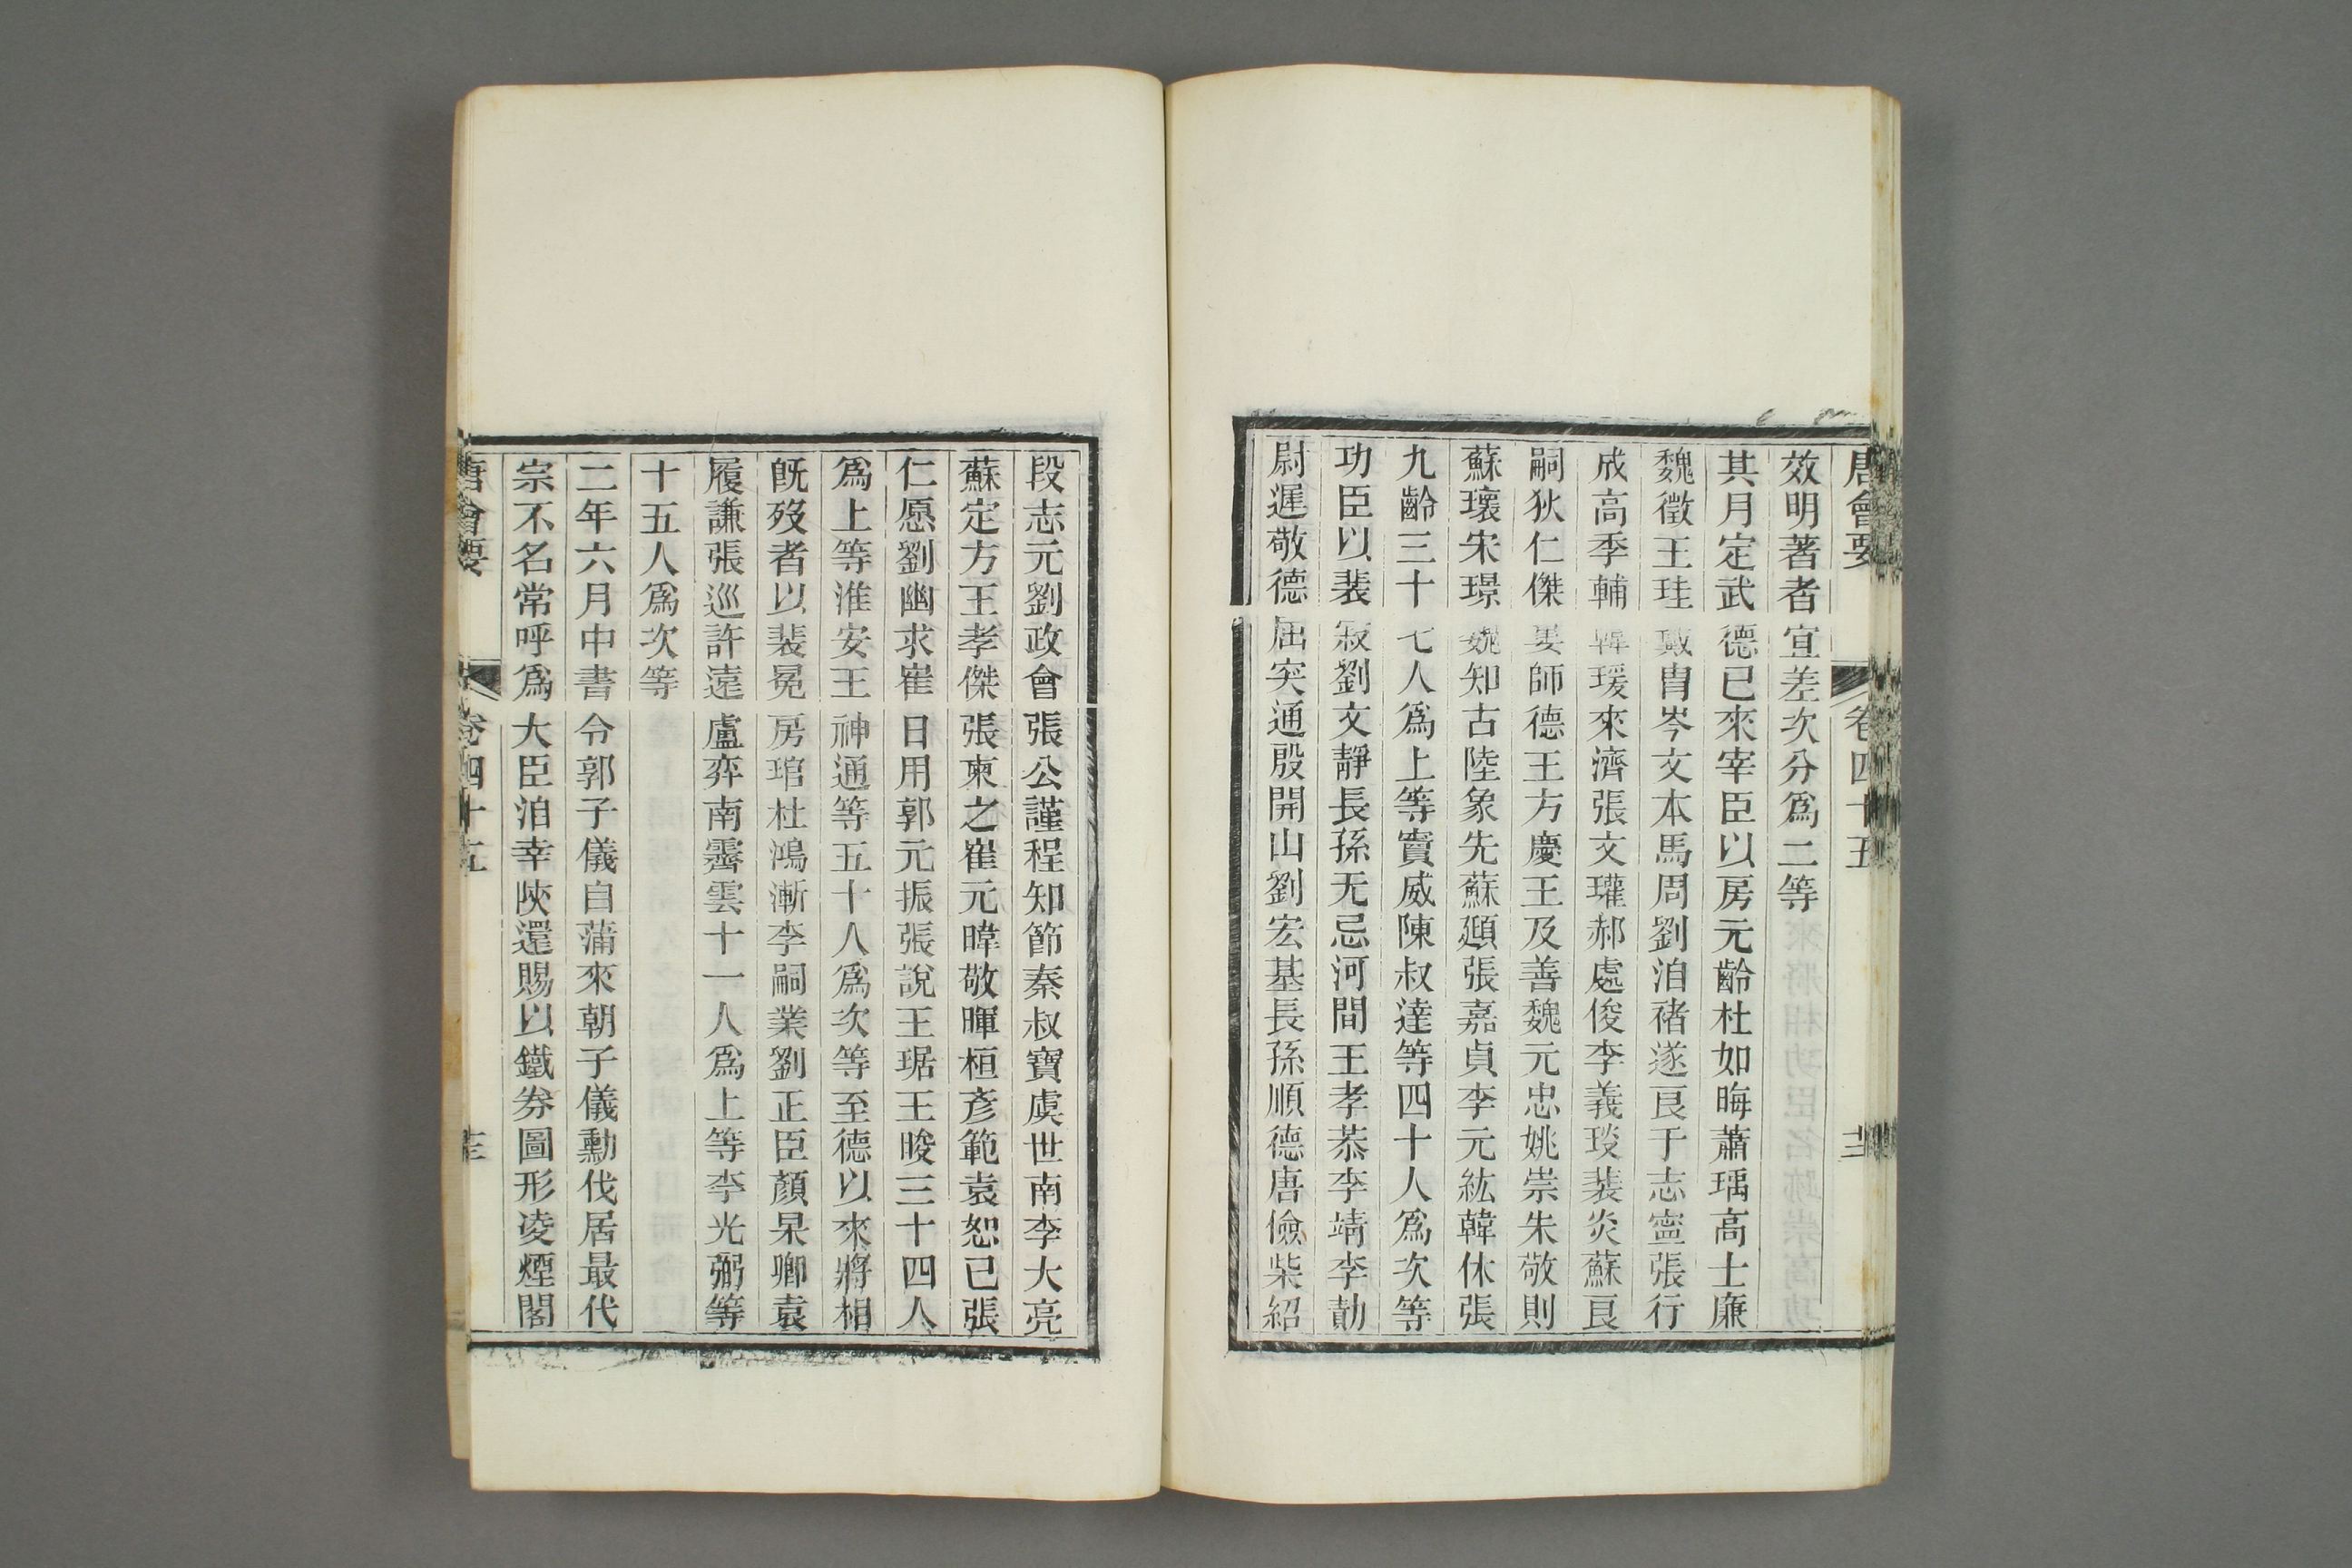 唐會要 卷四十五
效明著者宜差次分爲二等
其月定武德已來宰臣以房元齡杜如晦蕭瑀高士廉
魏徵王珪戴胄岑文本馬周劉洎褚遂良于志寧張行
成高季輔韓瑗來濟張文瓘郝處俊李義琰裴炎蘇良
嗣狄仁傑婁師德王方慶王及善魏元忠姚崇朱敬則
蘇瓌宋璟魏知古陸象先蘇頲張嘉貞李元紘韓休張
九齡三十七人爲上等竇威陳叔達等四十人爲次等
功臣以裴寂劉文靜長孫无忌河間王孝恭李靖李勣
尉遲敬德屈突通殷開山劉宏基長孫順德唐儉柴紹
段志元劉政會張公謹程知節秦叔寶虞世南李大亮
蘇定方王孝傑張柬之崔元暐敬暉桓彥範袁恕己張
仁愿劉幽求崔日用郭元振張說王琚王晙三十四人
爲上等淮安王神通等五十八爲次等至德以來將相
旣歿者以裴冕房琯杜鴻漸李嗣業劉正臣顏杲卿袁
履謙張巡許遠盧弈南霽雲十一人爲上等李光弼等
十五人爲次等
二年六月中書令郭子儀自蒲來朝子儀勳伐居最代
宗不名常呼爲大臣洎幸陝還賜以鐵券圖形凌煙閣
唐會要 卷四十五